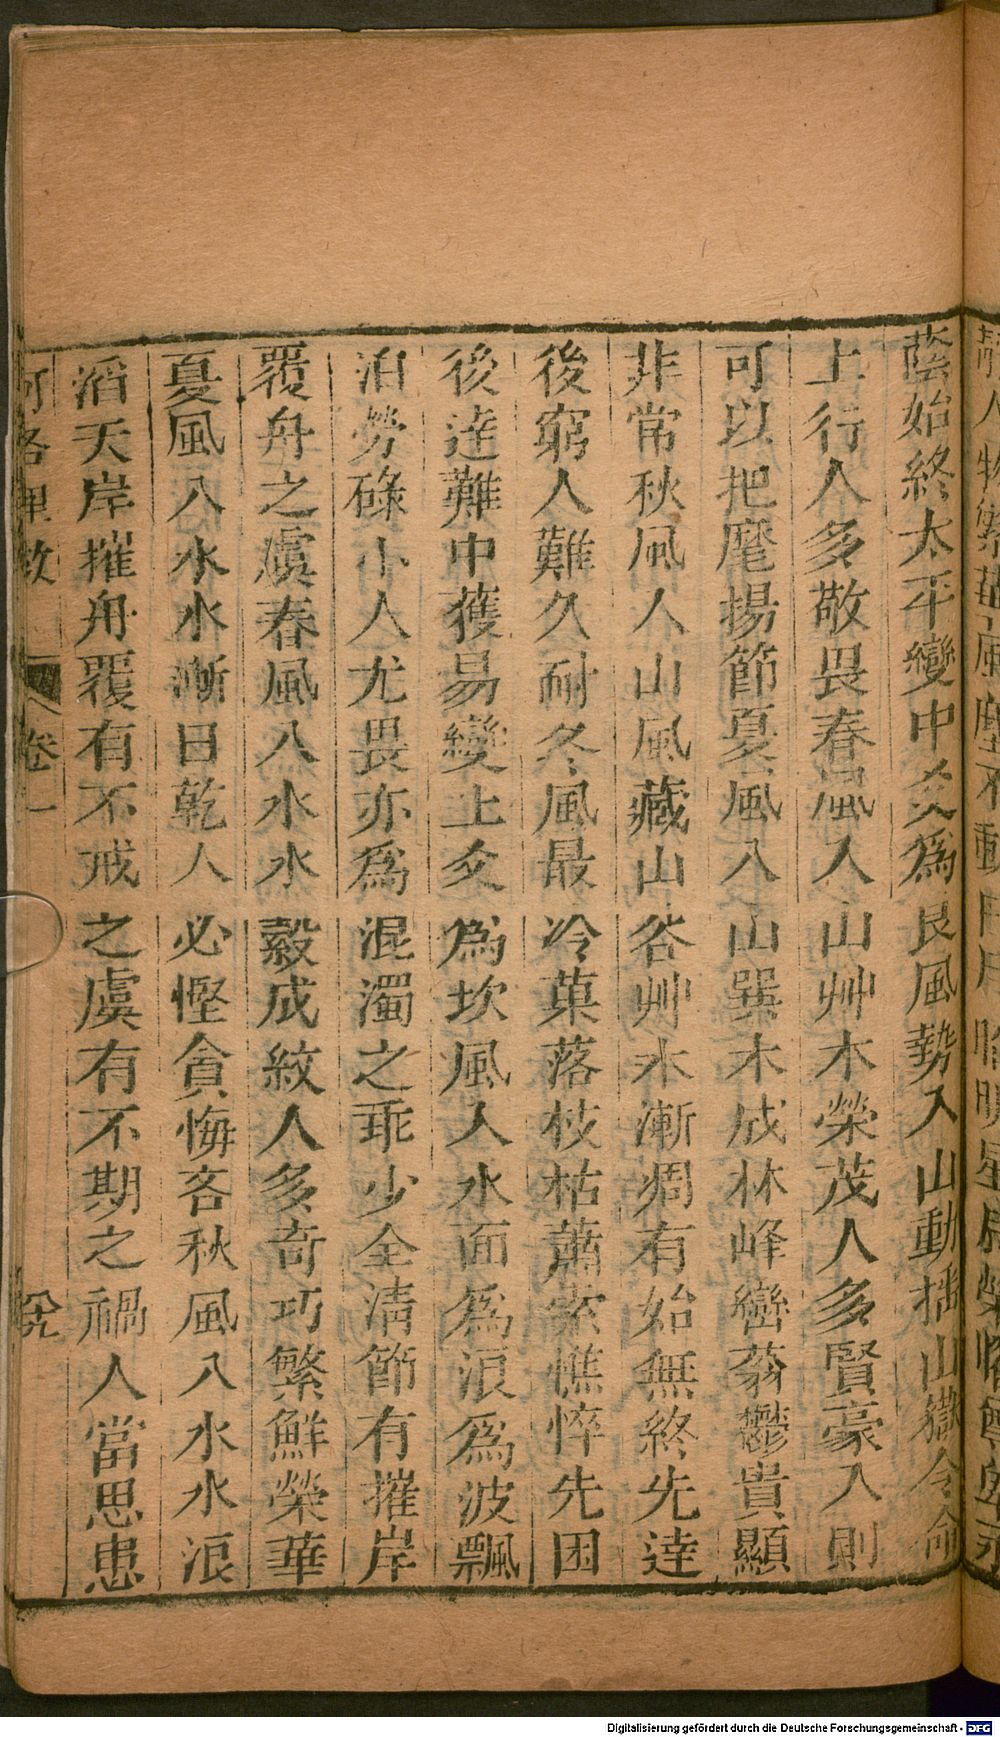 蔭始終太平變中爻為艮風勢入山動搖山嶽令命
上行人多敬畏春風入山艸木榮茂人多賢豪入則
可以把麾揚節夏風入山巽木成林峰巒蓊鬱貴顯
非常秋風入山風藏山谷艸木漸凋有始無終先達
後窮人難久耐冬風最冷葉落枝枯蕭索憔悴先困
後達難中獲易變上爻為坎風入水面為浪為波飄
泊勞碌小人尤畏亦為混濁之乖少全清節有摧岸
覆舟之虞春風入水水縠成紋人多奇巧繁鮮榮華
夏風入水水漸日乾人必慳貪悔吝秋風入水水浪
滔天岸摧舟覆有不戒之虞有不期之禍人當思患
河洛理數 卷一 六九
Digitalisierung gefördert durch die Deutsche Forschungsgemeinschaft - DFG